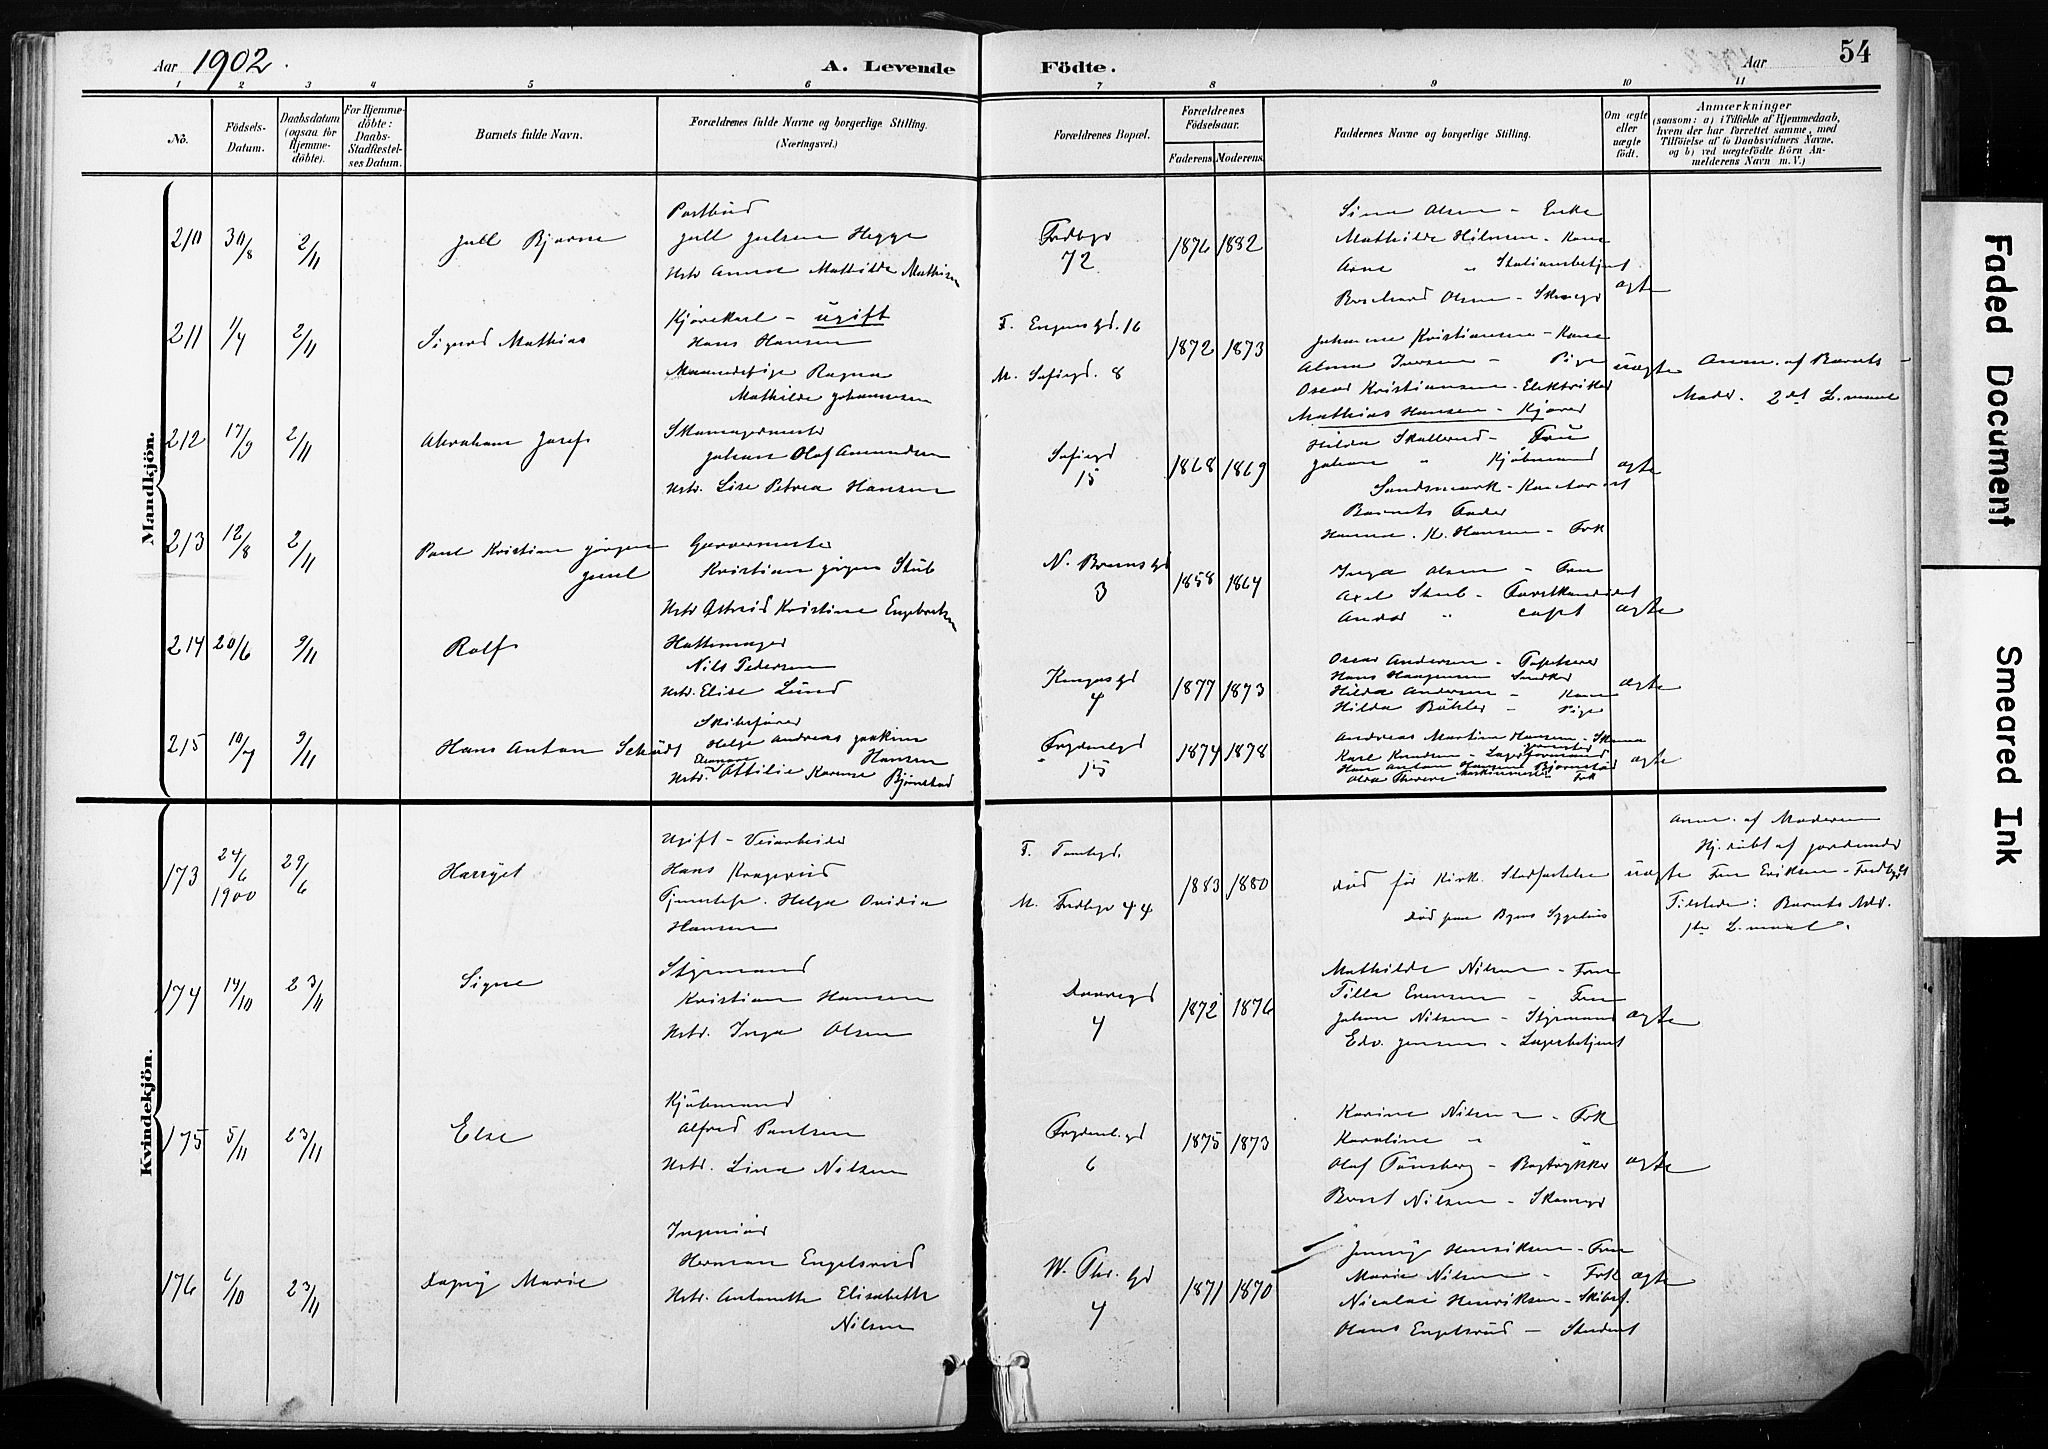 Aar 1902.
A. Levende Födte.
Aar
54
1 2 3 4 5 6 7 8 9 10 11
No.
Födsels-Datum.
Daabsdatum (ogsaa for Hjemme-döbte).
For Hjemme-döbte: Daabs-Stadfæstel-ses Datum.
Barnets fulde Navn.
Forældrenes fulde Navne og borgerlige Stilling. (Næringsvei.)
Forældrenes Bopæl.
Forældrenes Födselsaar.
Faderens. Moderens.
Faddernes Navne og borgerlige Stilling.
Om ægte eller uægte födt.
Anmærkninger
(saasom: a) i Tilfælde af Hjemmedaab,
hvem der har forrettet samme, med
Tilföielse af to Daabsvidners Navne,
og b) ved uægtefödte Börn An-
melderens Navn m. V.)
Mandkjön.
210 30/8 2/11
Juel Bjarne
Postbud
Juell Julsen Hegge
Hstr Anna Mathilde Mathisen
Fredbgd
72
1876 1882
Sina Olsen - Enke
Mathilde Hilmsen - Kone
Arne " Stationsbetjent
Bernhard Olsen - Skomgd
ægte
211 1/7 2/11
Sigurd Mathias
Kjørekarl - ugift
Hans Hansen
Maanedspige Ragna
Mathilde Johannesen
F. Engensgd. 16
M. Sofiegd. 8
1872 1873
Johanne Kristiansen - Kone
Alma Iversen - Pige
Oscar Kristiansen - Elektriker
Mathias Hansen - Kjører
uægte
Anm. af Barnets
Moder. 2det L.maal
212 17/9 2/11
Abraham Josef
Skomagermester
Johan Olaf Amundsen
Hstr. Lise Petrea Hansen
Sofiegd
15
1868 1869
Hilda Skallerud - Fru
Johan " Kjøbmand
Sandsmark - Kontorist
Barnets Fader
Hanna. K. Hansen - Frk
ægte
213 12/8 2/11
Paul Kristian Jørgen
Juul
Garvermester
Kristian Jørgen Stub
Hstr Astrid Kristine Engebretsen
N. Brunsgd
3
1858 1864
Inga Olsen - Fru
Axel Stub - Forstkandidat
Andor " capt
ægte
214 20/6 9/11
Rolf
Hattemager
Nils Pedersen
Hstr. Elise Lund
Kongensgd
4
1877 1873
Oscar Andersen - Tapetserer
Hans Haagensen Snedker
Hilda Andersen - Kone
Hilda Bühler - Pige
ægte
215 10/7 9/11
Hans Anton Schüdt
Skibsfører
Helge Andreas Joakim
Hansen
Eleonore
Hstr. Ottilie Karense Bjørnstad
Frydenlgd
15
1874 1878
Andreas Martin Hansen - Skomagermester
Karl Knudsen - Lagsformand
Hans Anton Hansen Bjørnstad
Maskinmester
Olea Therese Frk
ægte
Kvindekjön.
173 24/6 1900 29/6
Harryet
Ugift - Veiarbeider
Hans Kragerud
Tjenestep. Helga Ovidia
Hansen
F. Tombgd.
M. Fredbgd 44
1883 1880
død før Kirk. Stadfæstelse
død paa Byens Sygehus
uægte
Anm. af Moderen
Hj. døbt af Jordemoder
Fru Eriksen - Fredbgd
Tilstede: Barnets Mdr.
1ste L.maal.
174 14/10 23/11
Signe
Styrmand
Kristian Hansen
Hstr. Inga Olsen
Dronngd
4
1872 1876
Mathilde Nilsen - Fru
Tilla Evensen - Fru
Johan Nilsen - Styrmand
Edv. Jensen - Lagerbetjent
ægte
175 5/11 23/11
Else
Kjøbmand
Alfred Paulsen
Hstr. Lina Nilsen
Frydenlgd
6
1875 1873
Karine Nilsen - Frk
Karoline " "
Olaf Tønsberg - Bogtrykker
Bernt Nilsen - Skomgd
ægte
176 6/10 23/11
Dagny Marie
Ingeniør
Herman Engelsrud
Hstr. Antonette Elisabeth
Nilsen
W. Thr. gd
4
1871 1870
Jenny Henriksen - Fru
Marie Nilsen - Frk
Nicolai Henriksen - Skibsf.
Olaus Engelsrud - Student
ægte
Faded Document
Smeared Ink